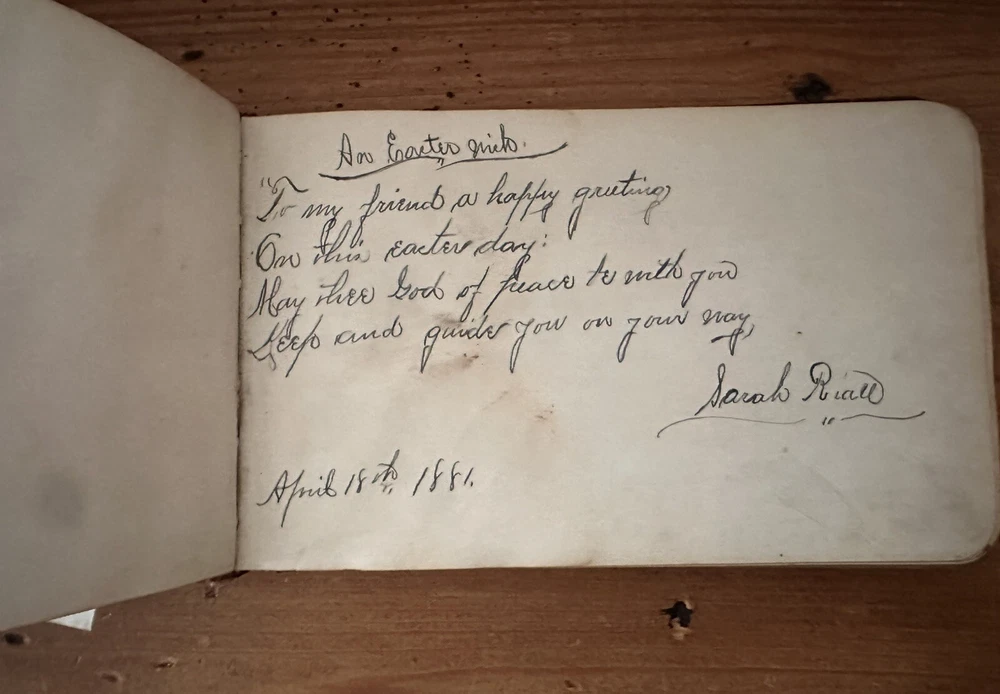 An Easter wish.
"To my friend a happy greeting
On this easter day:
May thee God of peace be with you
Keep and guide you on your way,
Sarah
April 18th, 1881.